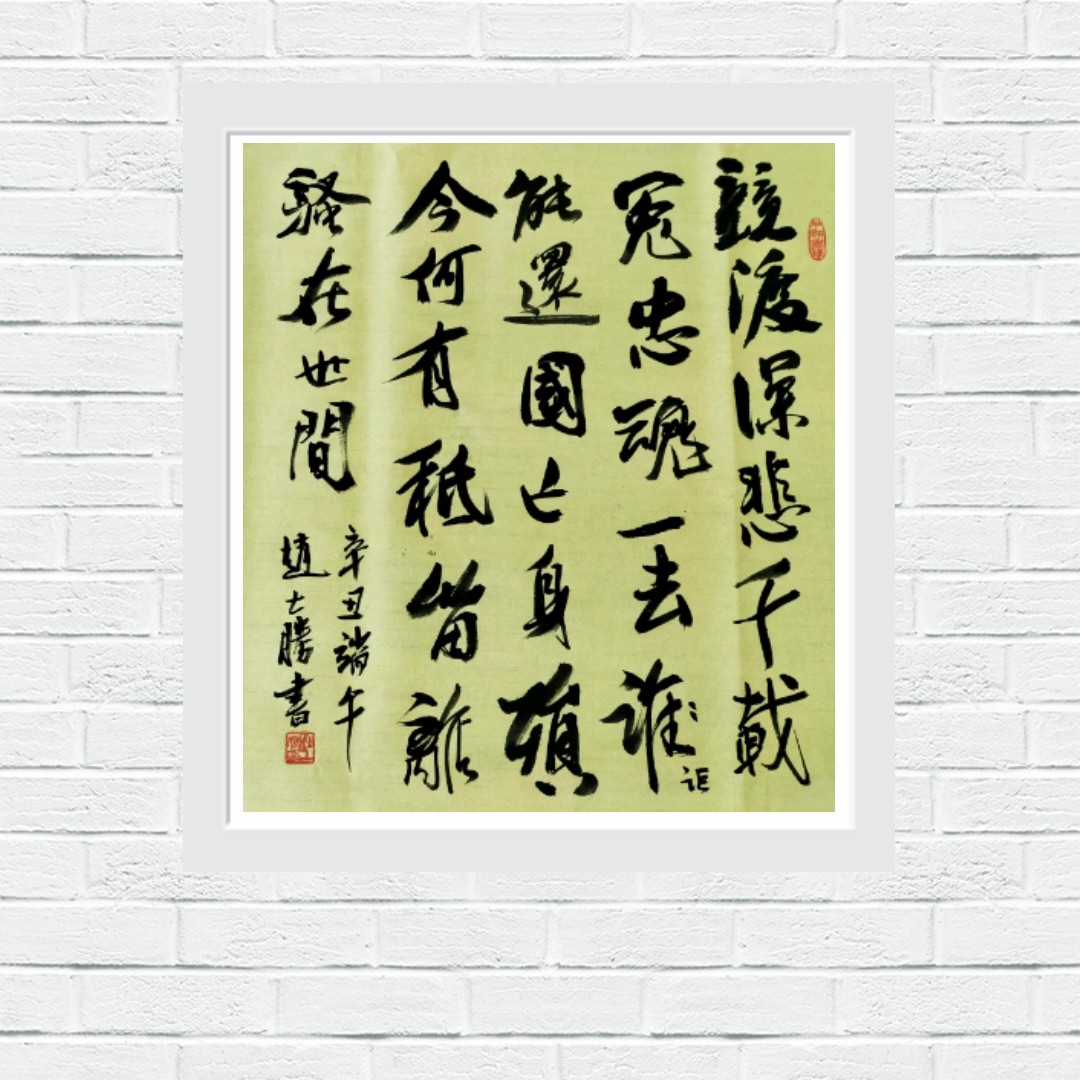 競渡深悲千載
冤忠魂一去誰讵
能還國亡身殞
今何有秖留離
騷在世間
辛丑端午
趙士勝書